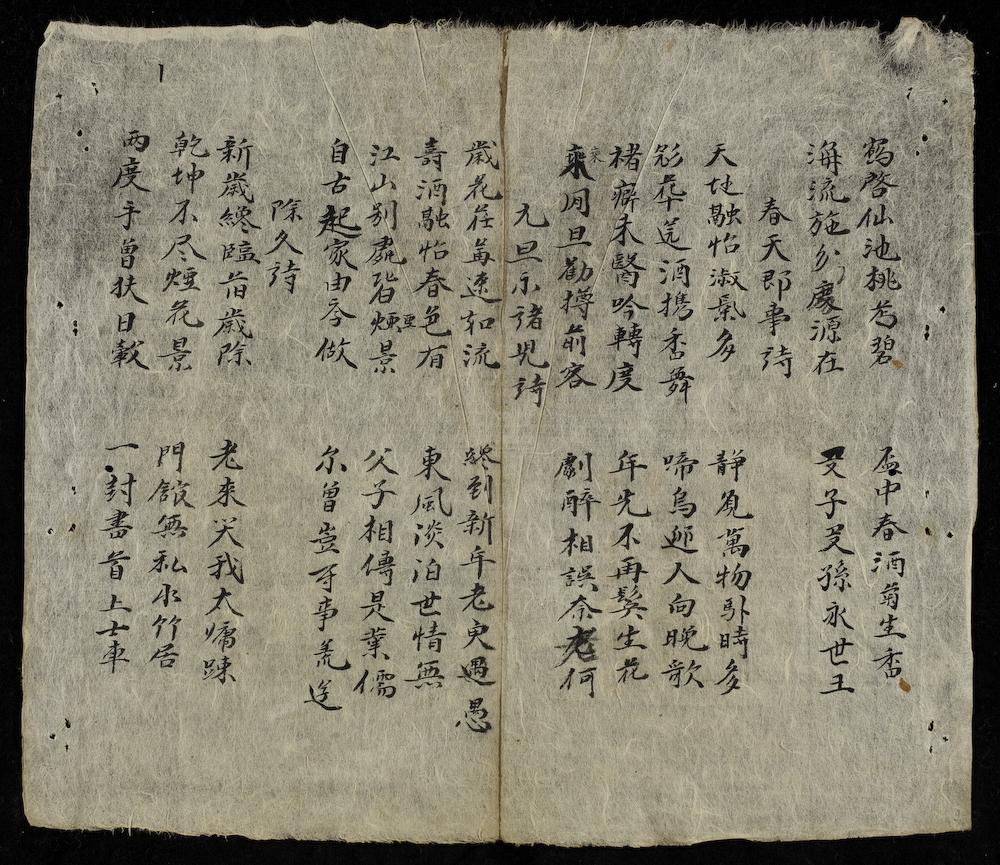 鶴啓仙池桃花碧
盃中春酒菊生香
溝流施分慶源在
又子又孫永世王
春天即事詩
天地融怡淑氣多
靜觀萬物馭時多
衫花送酒携香舞
啼鳥迎人向晚歌
禇癖未醫吟轉度
年先不再鬂生花
來
乘閒旦勸樽前客
劇醉相誤奈老何
元旦示諸児詩
歲花荏苒速如流
終到新年老更遇愚
壽酒融怡春色有
東風淡泊世情無
江山別處皆煙景
父子相傳是業儒
自古起家由孝做
尔曾豈可事荒迂
除久詩
新歲終臨旧歲除
老來笑我太慵踈
乾坤不尽煙花景
門館無私水竹居
両度手曾扶日轂
一封書首上士車